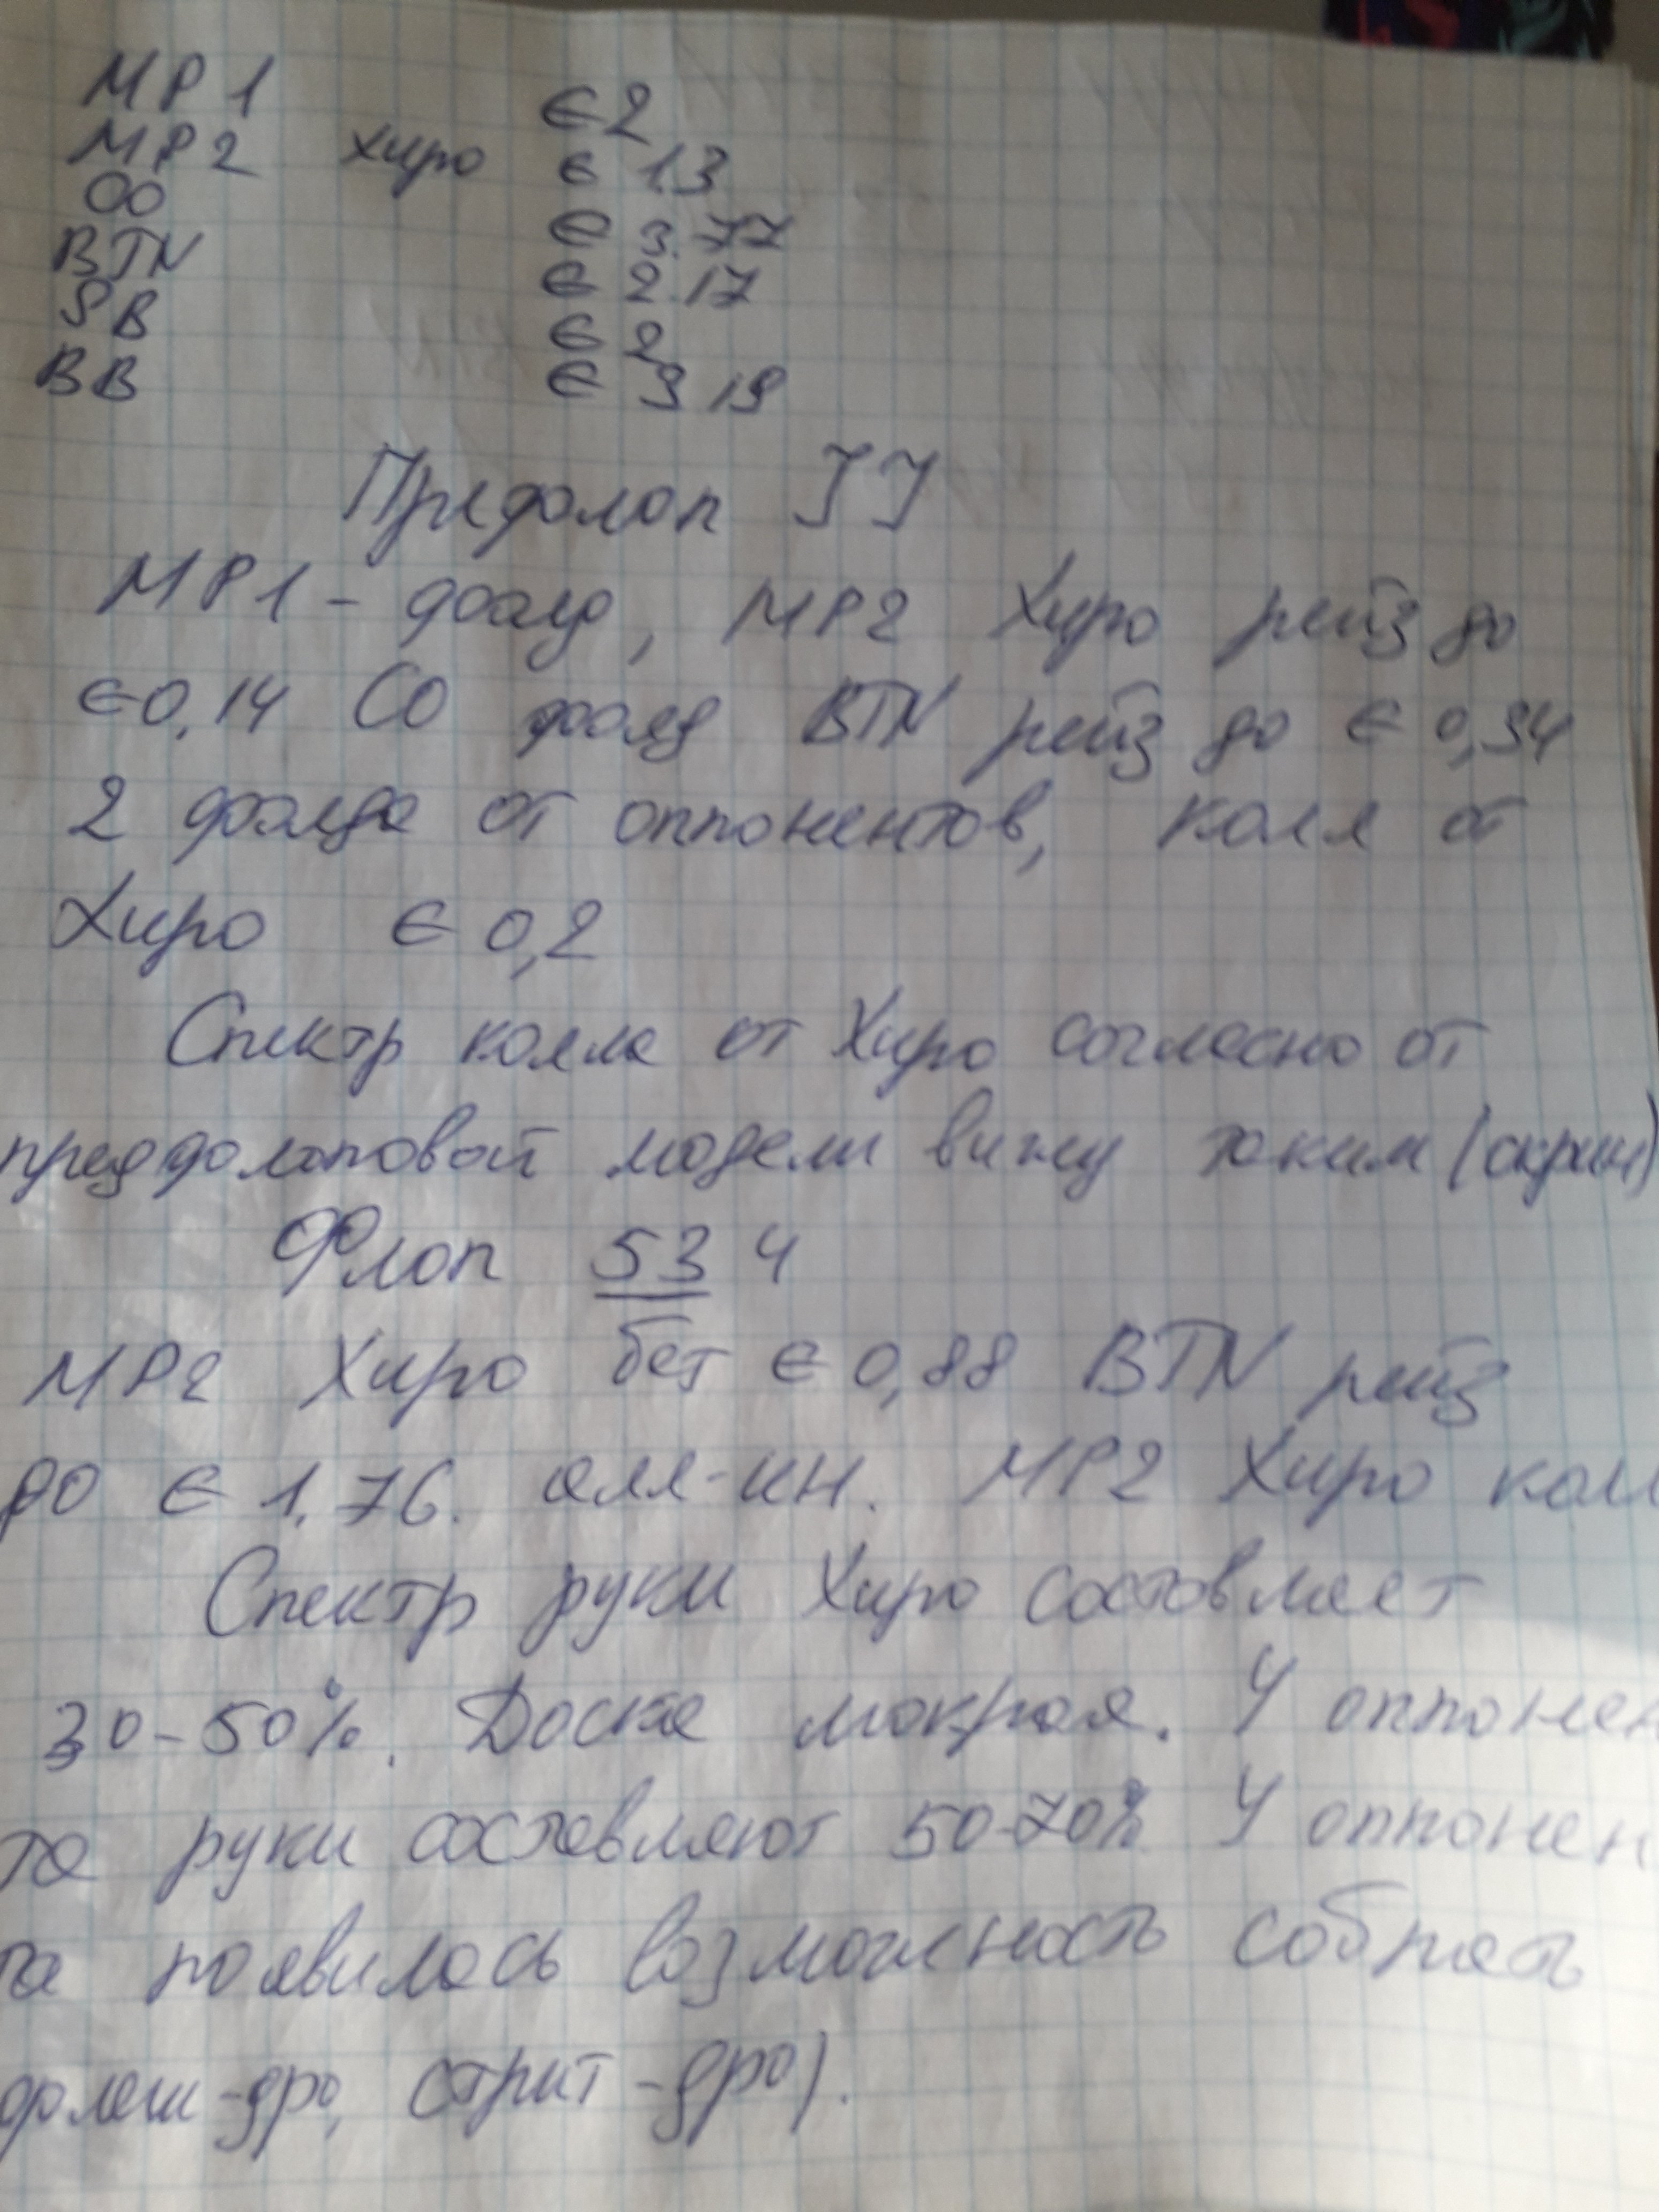 MP1 € 2
MP2 Хиро € 1.3
CO € 3.77
BTN € 2.17
SB € 2
BB € 3 19
Префлоп JJ
MP1 - фолд, MP2 Хиро рейз до
€0,14 CO фолд BTN рейз до € 0,34
2 фолда от оппонентов, колл от
Хиро € 0,2
Спектр колла от Хиро согласно от
предфлоповой модели вижу таким (скрин)
Флоп 53 4
MP2 Хиро бет € 0,88 BTN рейз
до € 1,76. алл-ин. MP2 Хиро кол
Спектр руки Хиро составляет
30-50%. Доска мокрая. У оппонен
та руки составляют 50-70% У оппонен
та появилась возможность собрать
флеш-дро, стрит-дро).